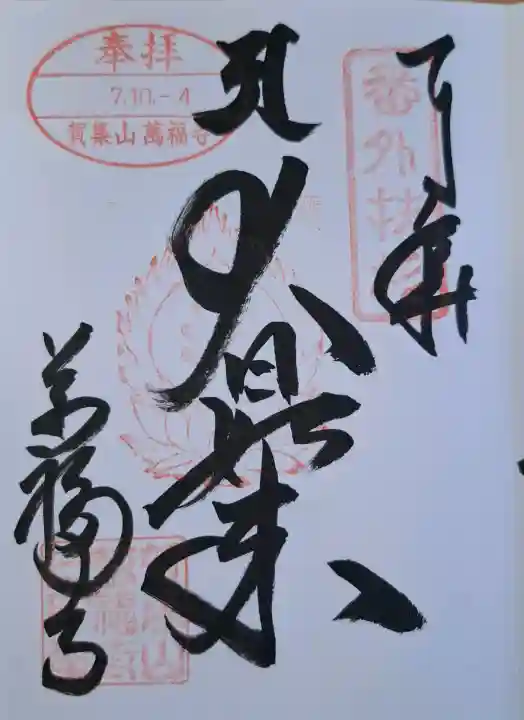 奉拝
番外札所
大日如来
萬福寺
奉拝
7.10.-4
賀集山 萬福寺